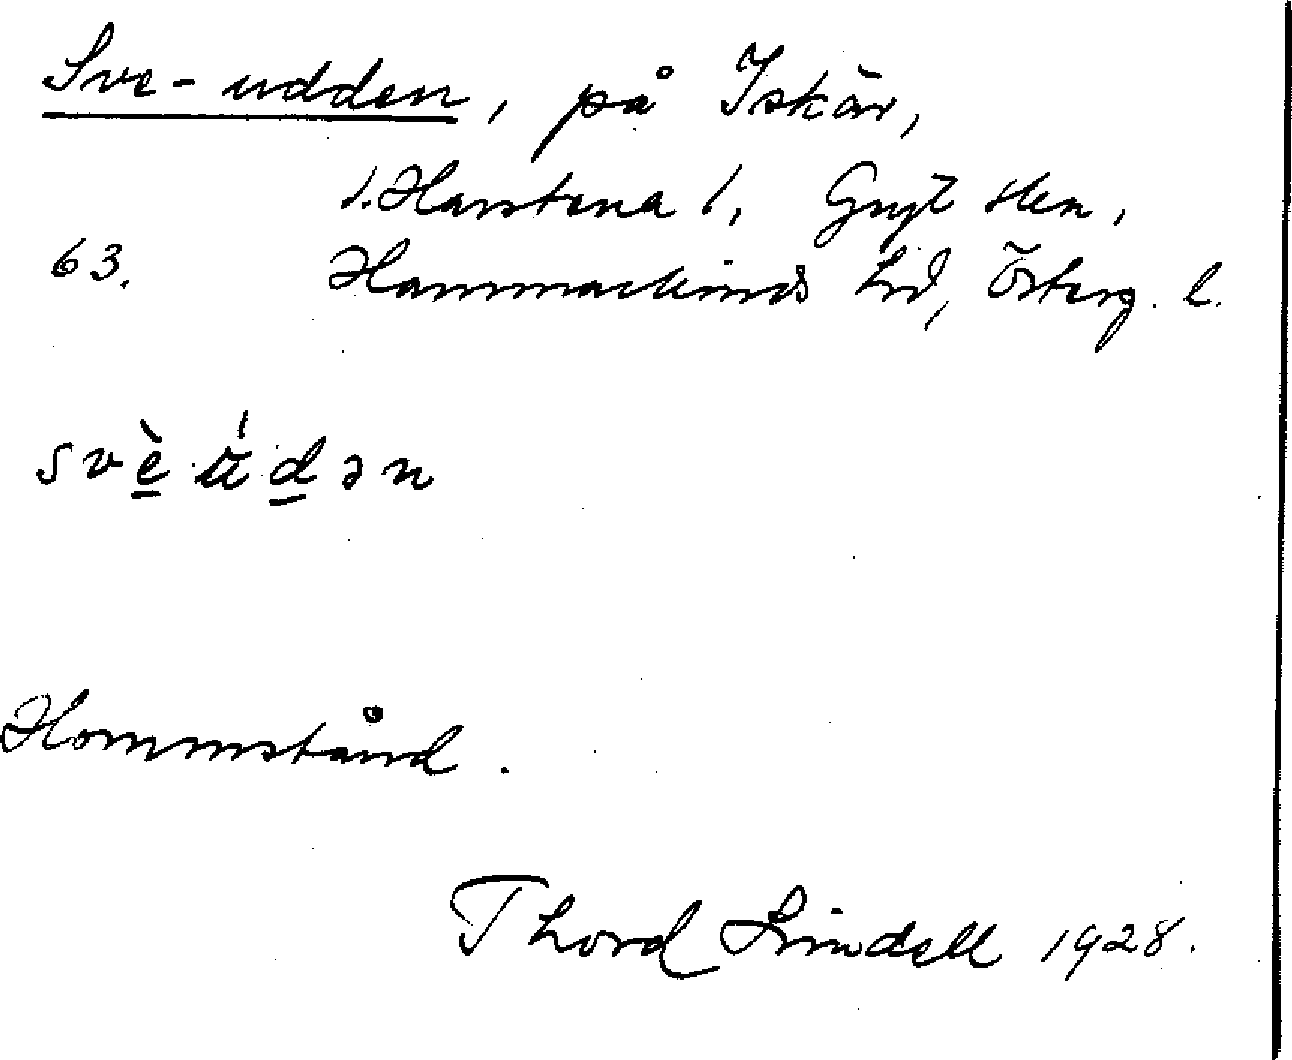 Sve-udden, på Iskär,
1. Harstena 1, Gryt skn,
63. Hammarkinds hd, Österg. l.
svè̱ ú̶ḏən
Hommstånd.
Thord Lindell 1928.